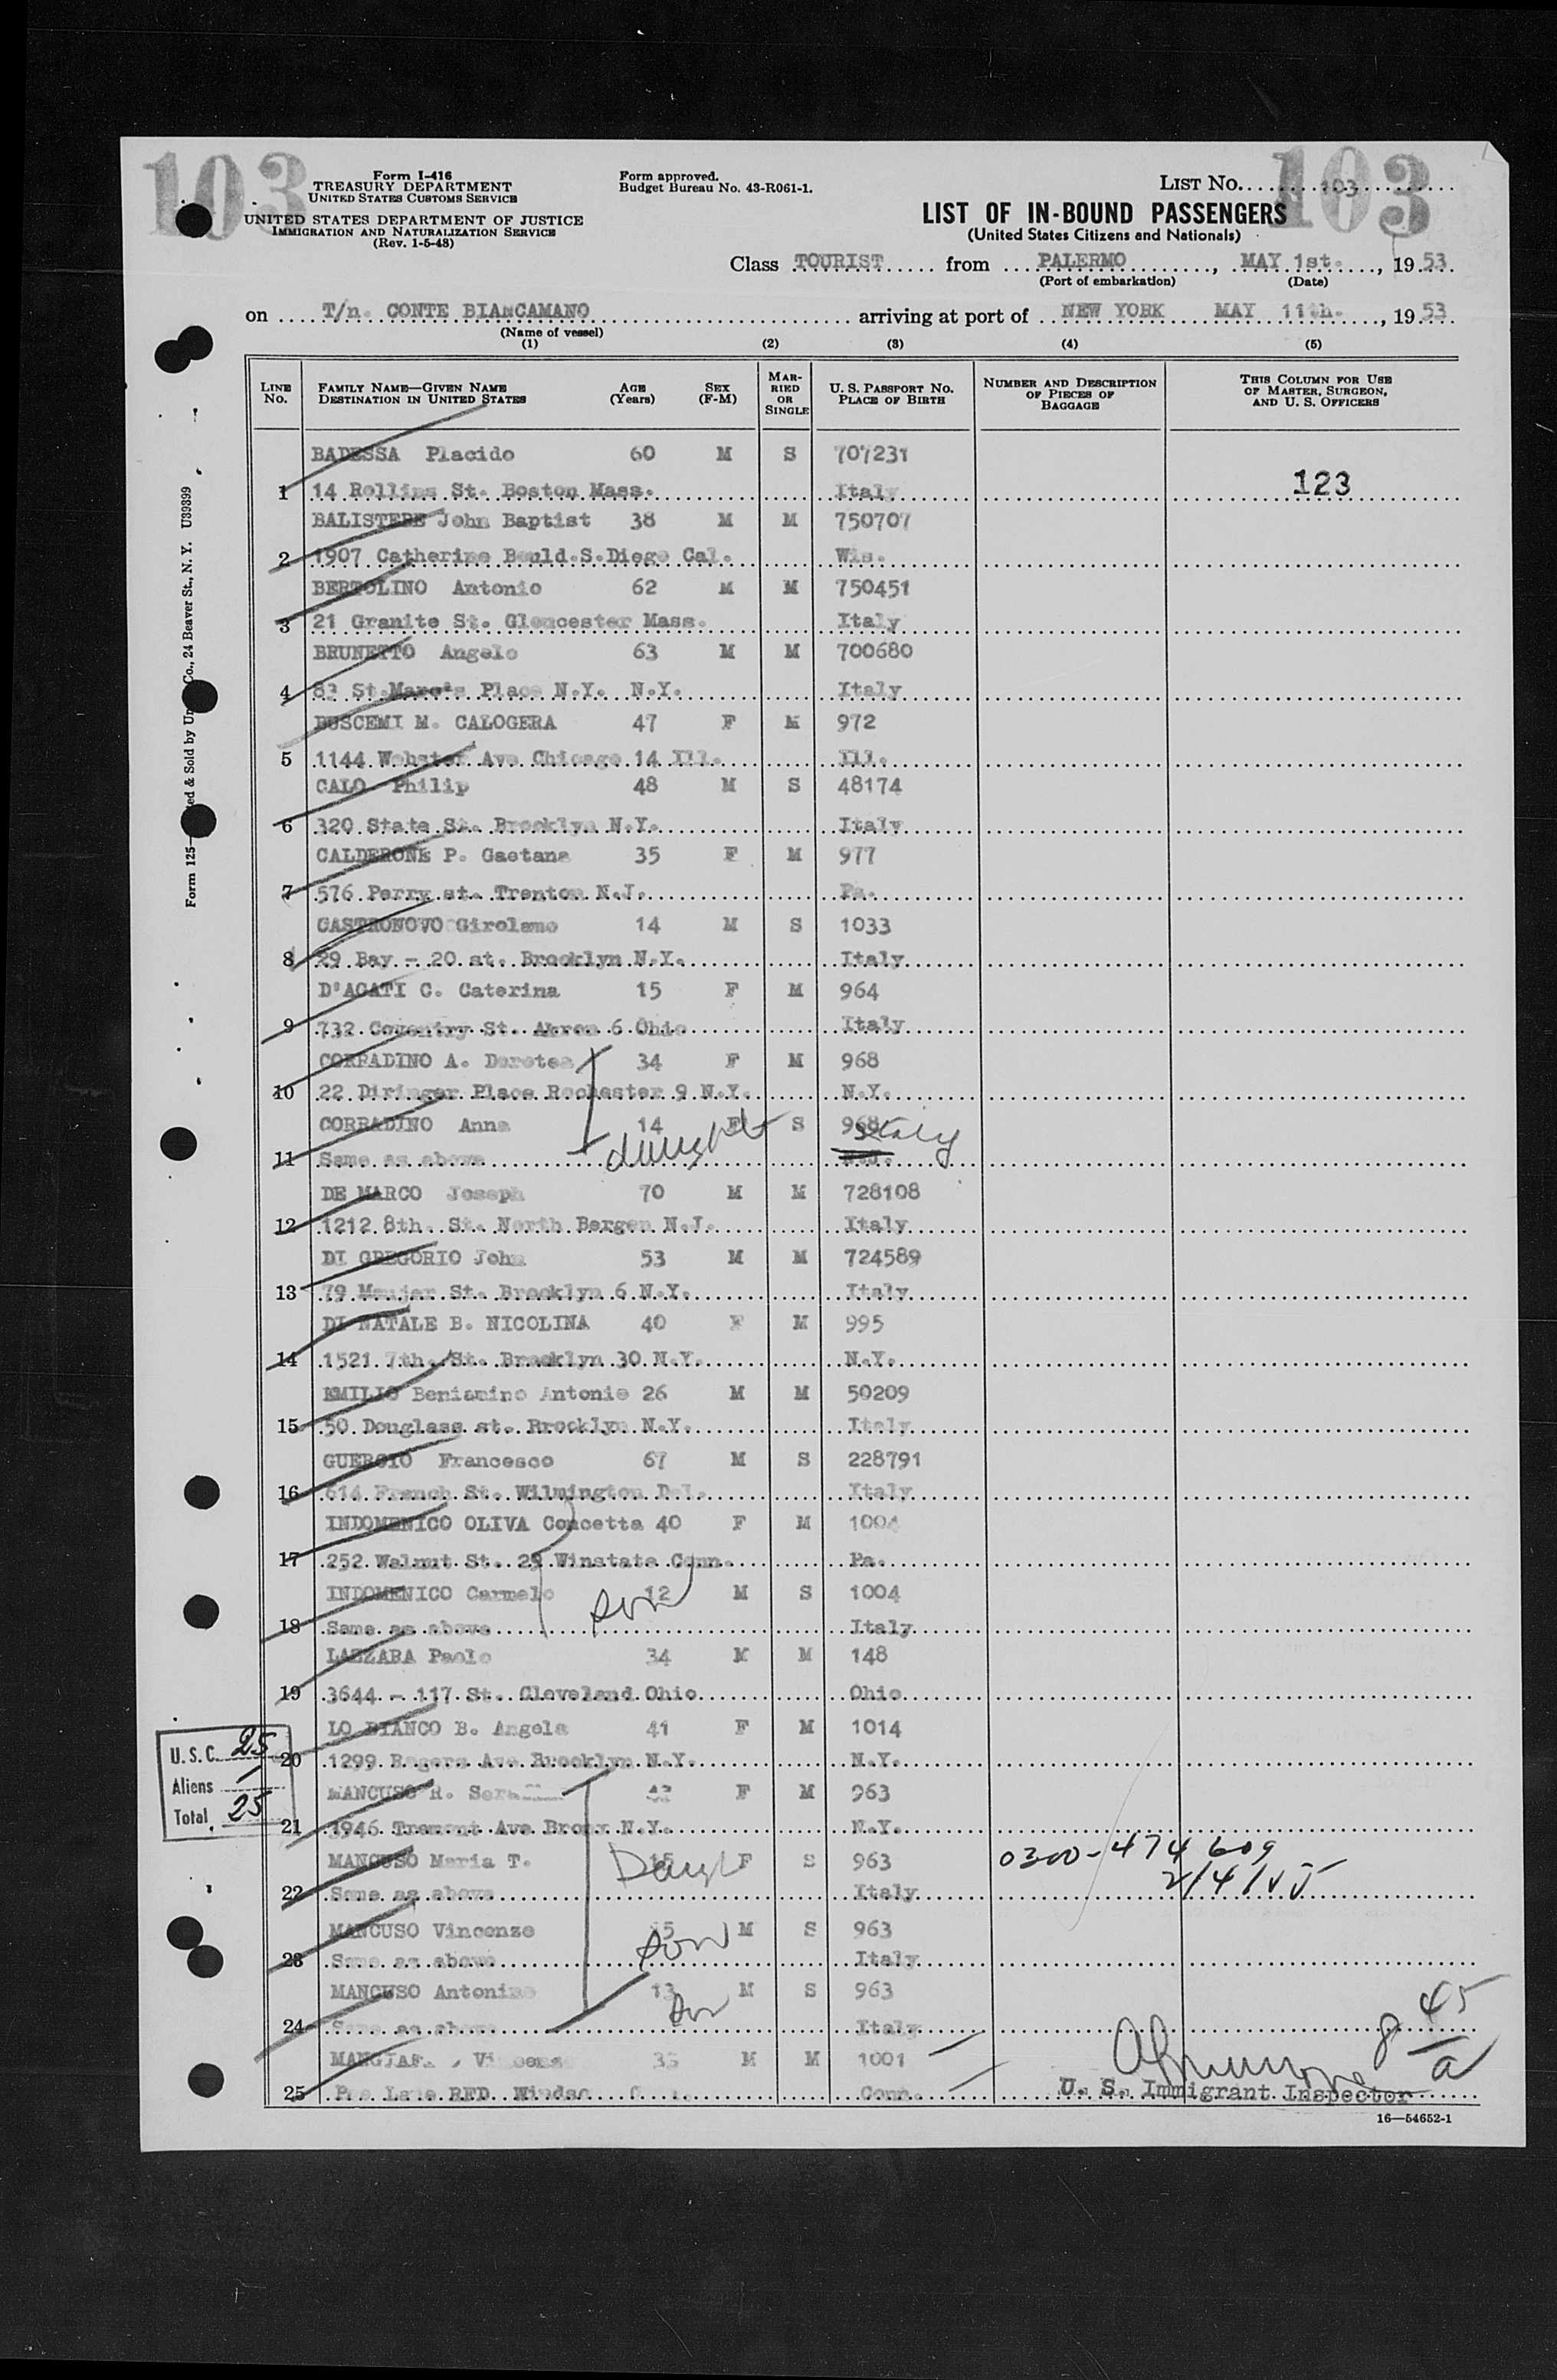 103
103
Form I-416
TREASURY DEPARTMENT
UNITED STATES CUSTOMS SERVICE
UNITED STATES DEPARTMENT OF JUSTICE
IMMIGRATION AND NATURALIZATION SERVICE
(Rev. 1-5-48)
Form approved.
Budget Bureau No. 43-R061-1.
LIST NO. 103
LIST OF IN-BOUND PASSENGERS
(United States Citizens and Nationals)
Class TOURIST from PALERMO, MAY 1st., 1953
(Port of embarkation) (Date)
on T/n. CONTE BIANCAMANO arriving at port of NEW YORK MAY 11th., 1953
(Name of vessel)
(1) (2) (3) (4) (5)
LINE NO.
FAMILY NAME—GIVEN NAME
DESTINATION IN UNITED STATES
AGE (Years)
SEX (F-M)
MARRIED OR SINGLE
U. S. PASSPORT NO.
PLACE OF BIRTH
NUMBER AND DESCRIPTION OF PIECES OF BAGGAGE
THIS COLUMN FOR USE OF MASTER, SURGEON, AND U. S. OFFICERS
BADESSA Placido 60 M S 707231
1 14 Rollins St. Boston Mass. Italy 123
BALISTERE John Baptist 38 M M 750707
2 1907 Catherine Bould.S.Diego Cal. Wis.
BERTOLINO Antonio 62 M M 750451
3 21 Granite St. Gloucester Mass. Italy
BRUNETTO Angelo 63 M M 700680
4 83 St.Marc's Place N.Y. N.Y. Italy
BUSCEMI M. CALOGERA 47 F M 972
5 1144 Webster Ave Chicago 14 Ill. Ill.
CALO Philip 48 M S 48174
6 320 State St. Brooklyn N.Y. Italy
CALDERONE P. Gaetana 35 F M 977
7 576 Perry st. Trenton N.J. Pa.
CASTRONOVO Girolamo 14 M S 1033
8 29 Bay - 20 st. Brooklyn N.Y. Italy
D'AGATI C. Caterina 15 F M 964
9 732 Coventry St. Akron 6 Ohio Italy
CORRADINO A. Dorotea 34 F M 968
10 22 Diringer Place Rochester 9 N.Y. N.Y.
CORRADINO Anna 14 F S 968
11 Same as above daught Italy
DE MARCO Joseph 70 M M 728108
12 1212 8th. St. North Bergen N.J. Italy
DI GREGORIO John 53 M M 724589
13 79 Maujer St. Brooklyn 6 N.Y. Italy
DI NATALE B. NICOLINA 40 F M 995
14 1521 7th. St. Brooklyn 30 N.Y. N.Y.
EMILIO Beniamino Antonio 26 M M 50209
15 50 Douglass st. Brooklyn N.Y. Italy
GUERCIO Francesco 67 M S 228791
16 614 French St. Wilmington Del. Italy
INDOMENICO OLIVA Concetta 40 F M 1004
17 252 Walnut St. 29 Winstate Conn. Pa.
INDOMENICO Carmelo 12 M S 1004
son
18 Same as above Italy
LAZZARA Paolo 34 M M 148
19 3644 - 117 St. Cleveland Ohio Ohio
LO BIANCO B. Angela 41 F M 1014
20 1299 Rogers Ave Brooklyn N.Y. N.Y.
MANCUSO R. 963 F M
21 3946 Tremont Ave Bronx N.Y. N.Y.
MANCUSO Maria T. 15 F S 963 0300-474 609
Daugh
22 Same as above Italy 2/4/55
MANCUSO Vincenzo 15 M S 963
son
23 Same as above Italy
MANCUSO Antonino 13 M S 963
son
24 Same as above Italy
M M 1001
25 Lane RFD. Windso Conn.
45
U. S. Immigrant Inspector
16—54652-1
U.S.C. 25
Aliens /
Total 25
Co., 24 Beaver St., N. Y. U39399
Form 125— ed & Sold by Un